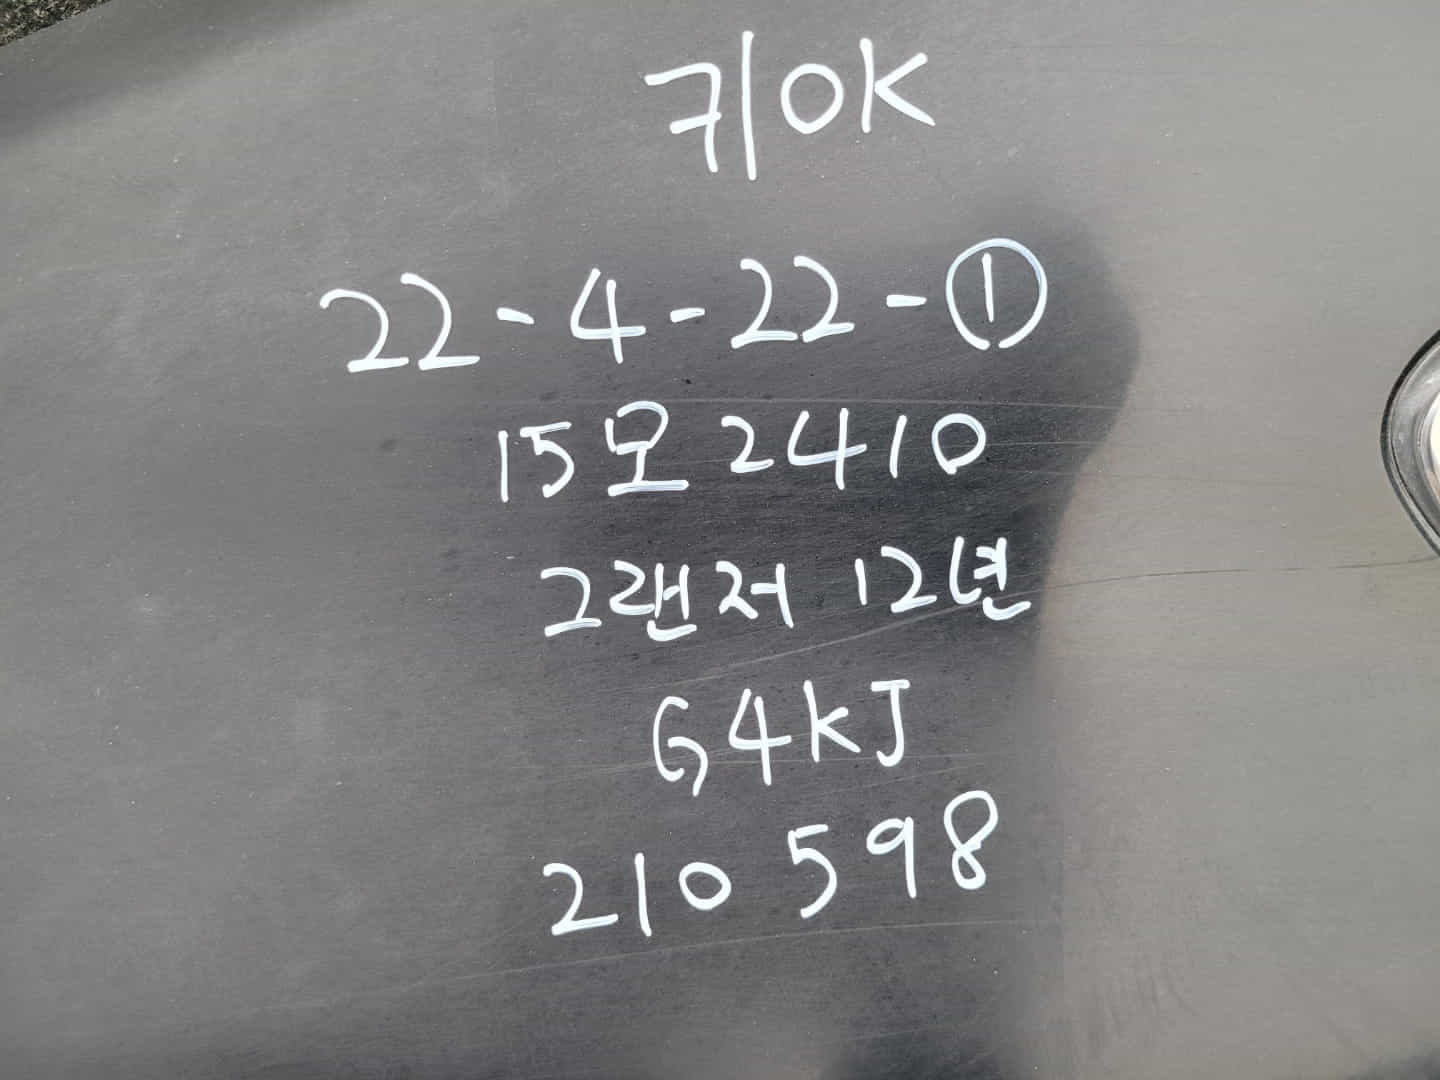 키OK
22-4-22-①
15모 2410
그랜저 12년
G4KJ
210 598